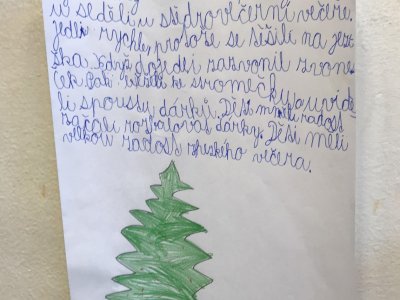 už seděli u štědrovečerní večeře.
Jedli rychle, protože se těšili na jež
íška. Když dojedli zazvonil zvone
ček. Pak běželi ke stromečku a uvidě
li spoustu dárků. Děti měli radost
začali rozbalovat dárky. Děti měli
velkou radost z hezkého večera.